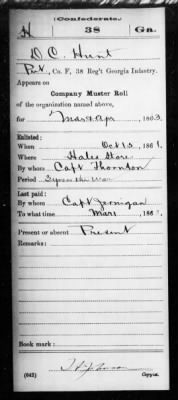 Confederate.
H 38 Ga.
D. C. Hunt
Pvt, Co. F, 38 Reg't Georgia Infantry.
Appears on
Company Muster Roll
of the organization named above,
for Mar & Apr, 1863.
Enlisted:
When Oct 15, 1861.
Where Hales Store
By whom Capt Thornton
Period the War
Last paid:
By whom Capt Jernigan
To what time Mar 1, 186
Present or absent Present
Remarks:
Book mark:
(642) Copyist.